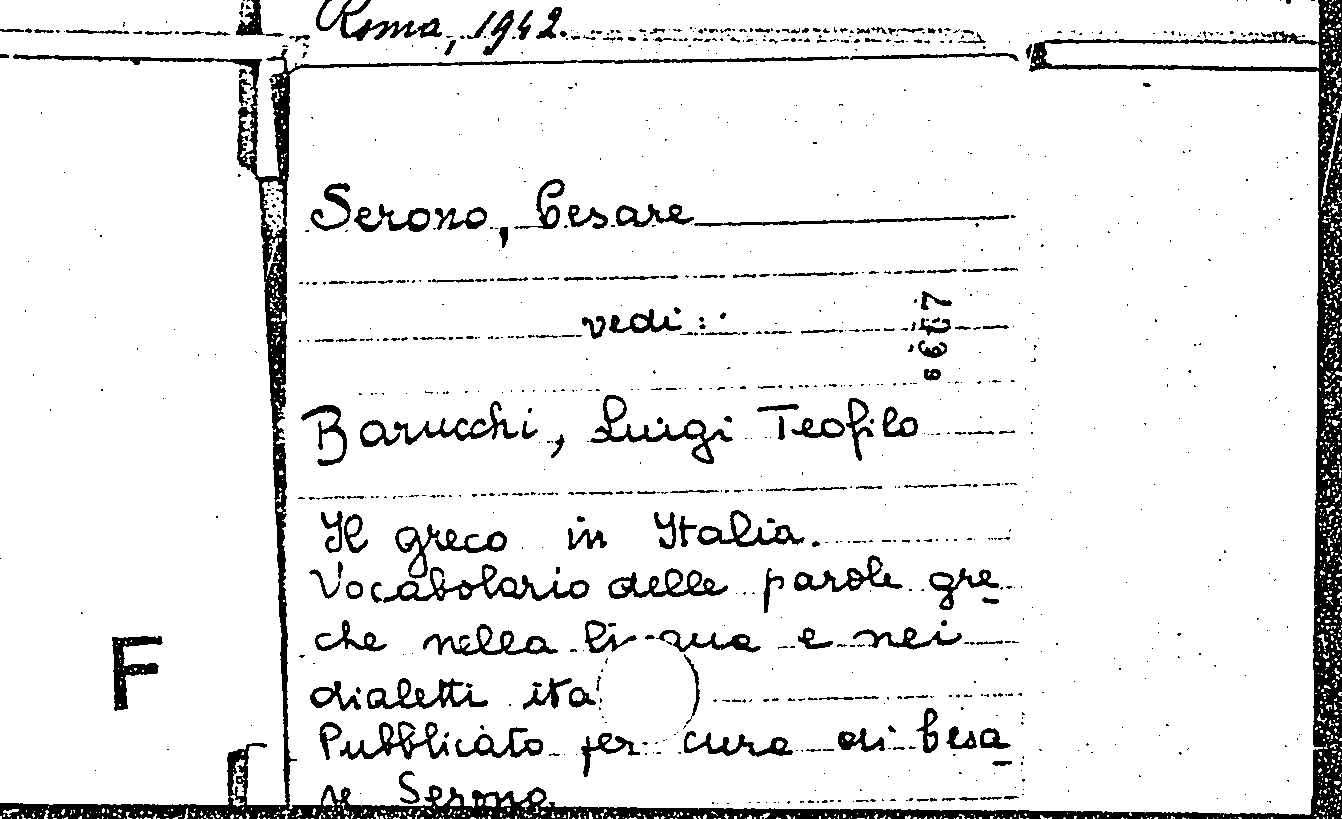 Roma, 1942.
Serono, Cesare
vedi:
Barucchi, Luigi Teofilo
Il greco in Italia.
Vocabolario delle parole gre-
che nella li gua e nei
dialetti ita
Pubblicato per cura di Cesa-
re Serono.
F